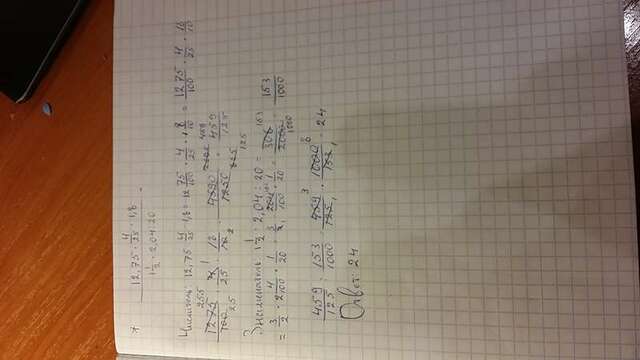 * 12,75 · 4/25 · 1,8
1 1/2 · 2,04 : 20 =
Числитель: 12,75 · 4/25 · 1,8 = 12 75/100 · 4/25 · 1 8/10 = 1275/100 · 4/25 · 18/10
255 1 459
1275/100 · 4/25 · 18/10 = 4590/1250 = 459/125
25 2 125
Знаменатель: 1 1/2 · 2,04 : 20 =
= 3/2 · 2 4/100 · 1/20 = 3/2 · 204/100 · 1/20 = 306/2000 = 153/1000
153 1000
459/125 : 153/1000 = 459/125 · 1000/153 = 24
3 8 1 1
Ответ: 24